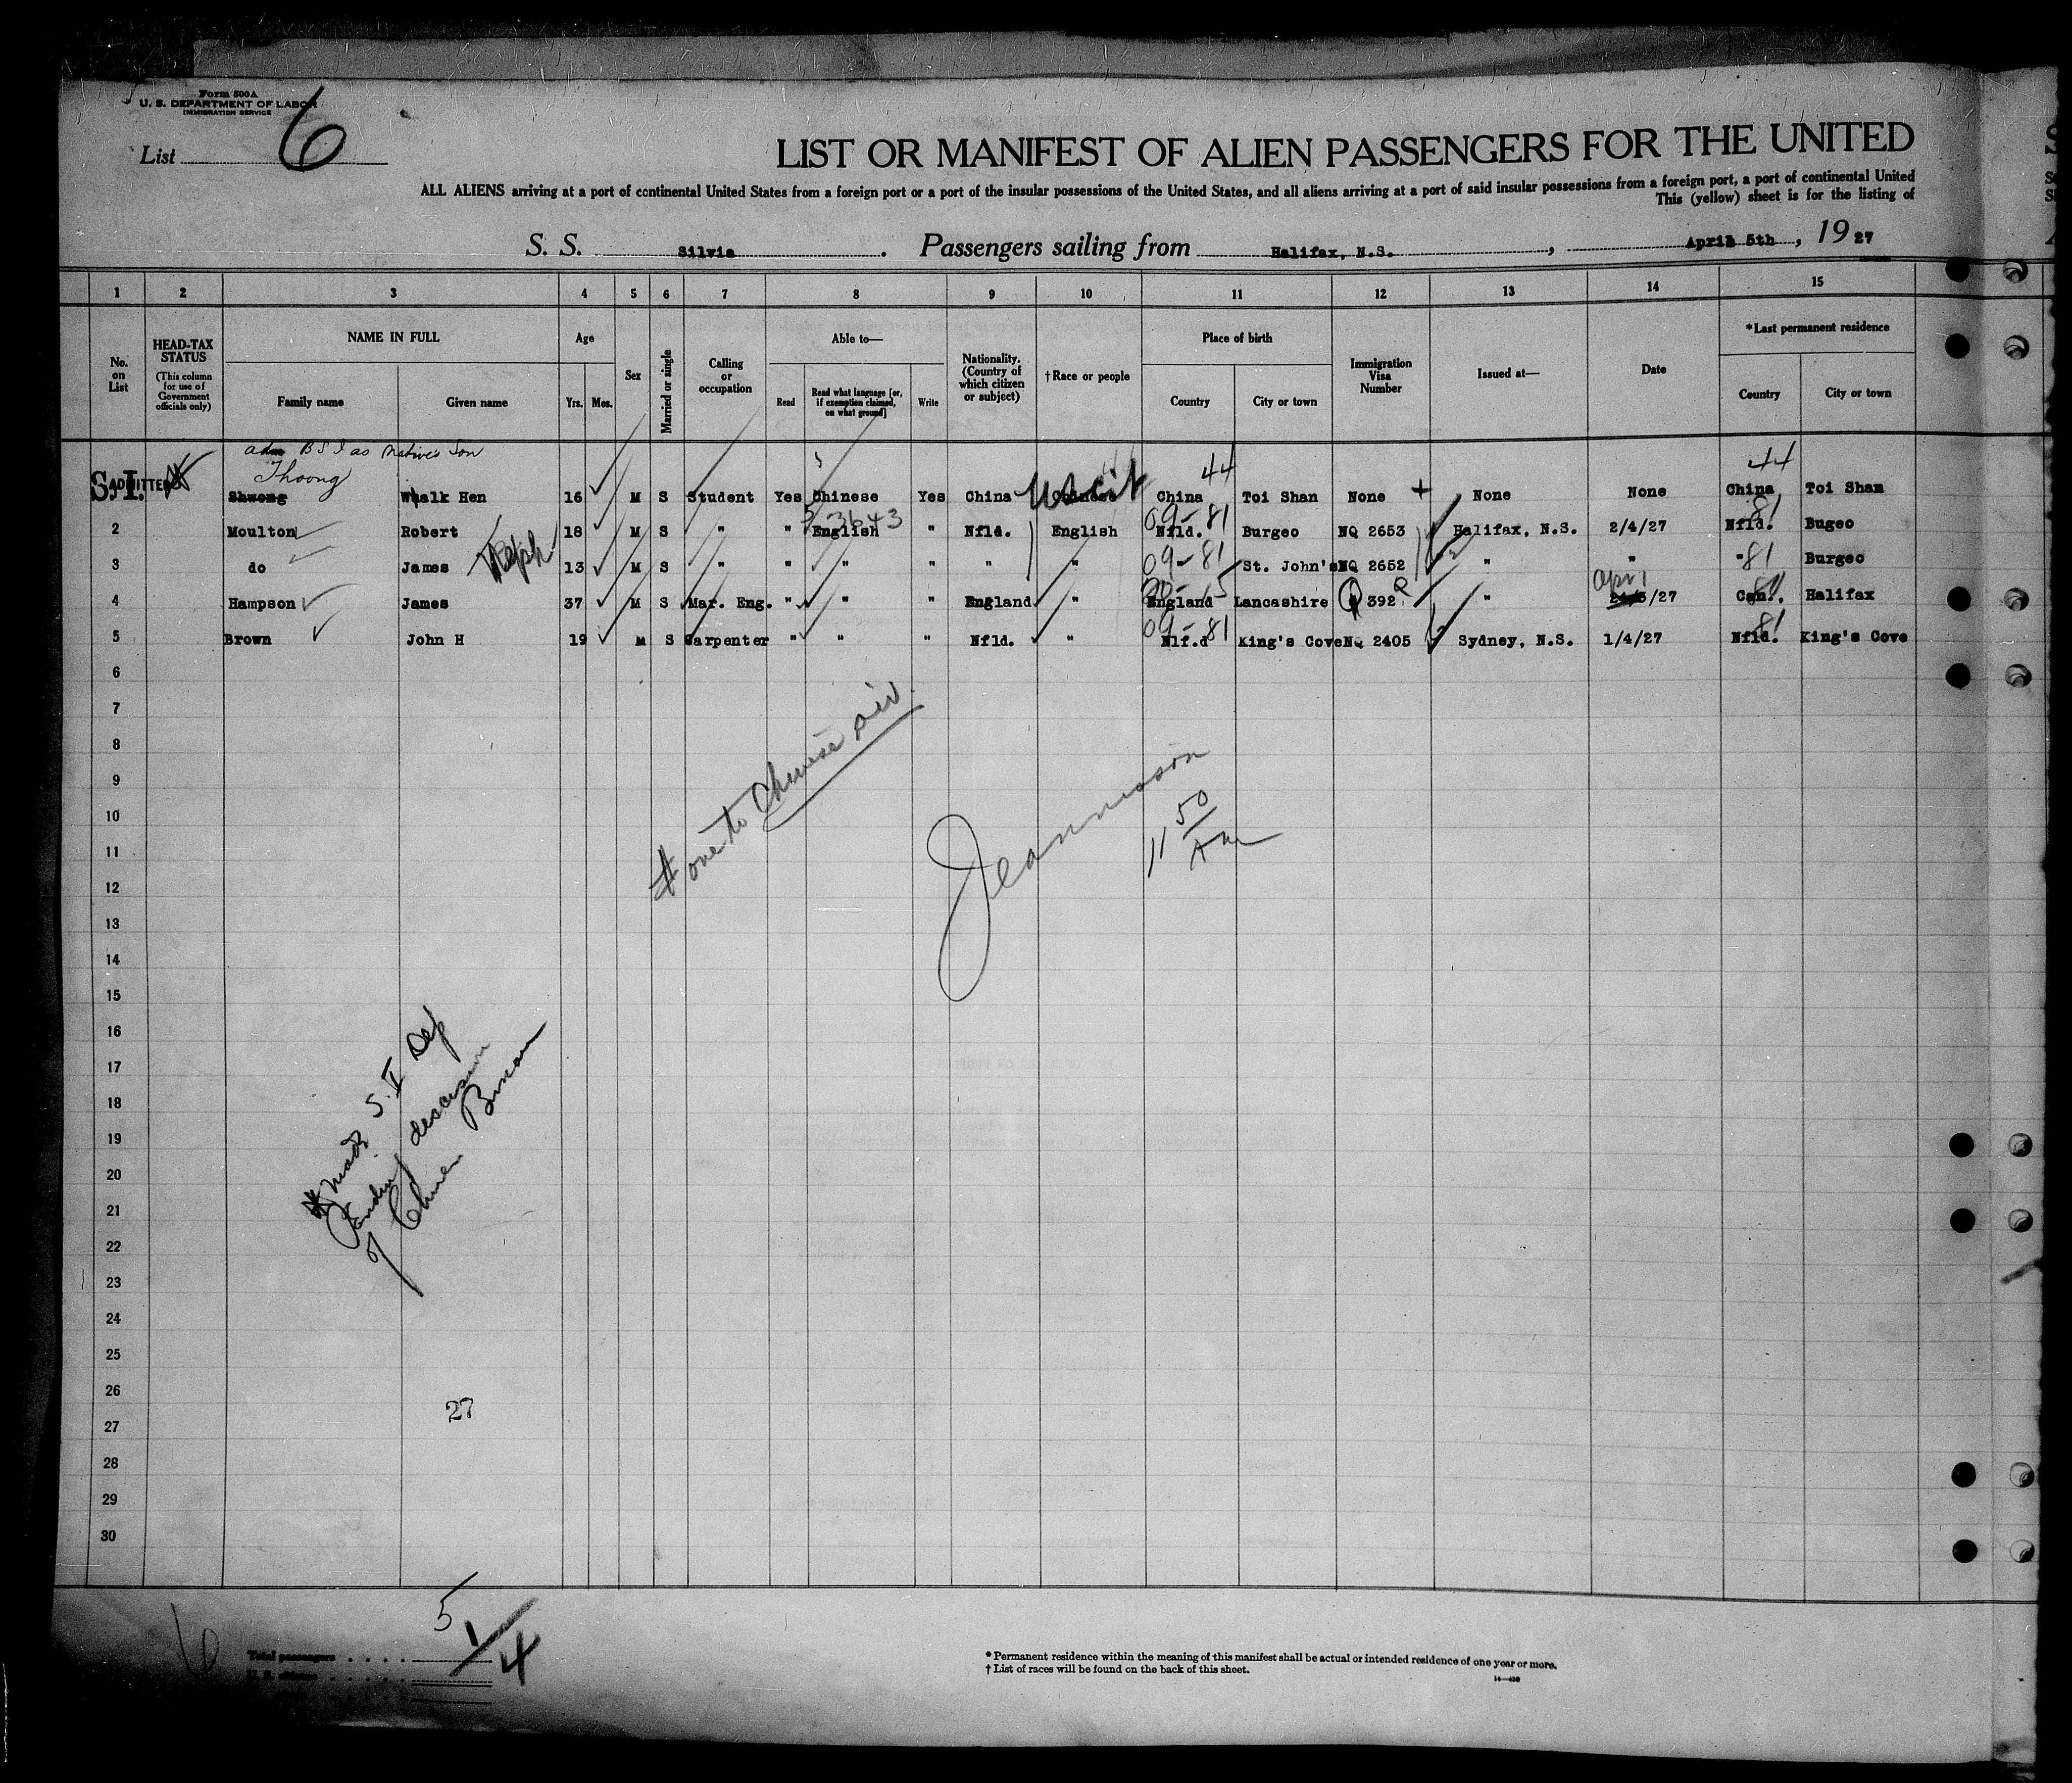 Form 500A
U. S. DEPARTMENT OF LABOR
IMMIGRATION SERVICE
List 6
LIST OR MANIFEST OF ALIEN PASSENGERS FOR THE UNITED
ALL ALIENS arriving at a port of continental United States from a foreign port or a port of the insular possessions of the United States, and all aliens arriving at a port of said insular possessions from a foreign port, a port of continental United
This (yellow) sheet is for the listing of
S. S. Silvia. Passengers sailing from Halifax, N.S., April 5th, 1927
1 2 3 4 5 6 7 8 9 10 11 12 13 14 15
No. on List
HEAD-TAX STATUS
(This column for use of Government officials only)
NAME IN FULL
Family name Given name
Age
Yrs. Mos.
Sex
Married or single
Calling or occupation
Able to—
Read
Read what language [or, if exemption claimed, on what ground]
Write
Nationality. (Country of which citizen or subject)
†Race or people
Place of birth
Country City or town
Immigration Visa Number
Issued at—
Date
*Last permanent residence
Country City or town
adm BSI as Native's Son
Thoong 44 44
S.I. ADMITTED Shwong Whalk Hen 16 M S Student Yes Chinese Yes China Chinese US cit China Toi Shan None + None None China Toi Shan
5-3643 09-81 81
2 Moulton Robert 18 M S " " English " Nfld. English Nfld. Burgeo NQ 2653 Halifax, N.S. 2/4/27 Nfld. Bugeo
3 do James 13 M S " " " " " " " 09-81 St. John's NQ 2652 " " " 81 Burgeo
Apr 1
4 Hampson James 37 M S Mar. Eng. " " " England " England Lancashire Q 392 " 24/3/27 Can. Halifax
09-81 81
5 Brown John H 19 M S Carpenter " " " Nfld. " Nlf.d King's Cove NQ 2405 Sydney, N.S. 1/4/27 Nfld. King's Cove
6
7
8
9
10
11
12
13
14
15
16
17
18
19
20
21
22
23
24
25
26
27
28
29
30
# one to Chinese Div.
Jeannisson
11 50 AM
# made S.I. Def
Pending decision
of Chinese Bureau
27
5
1/4
6
Total passengers
U. S. citizens
* Permanent residence within the meaning of this manifest shall be actual or intended residence of one year or more.
† List of races will be found on the back of this sheet.
14—430